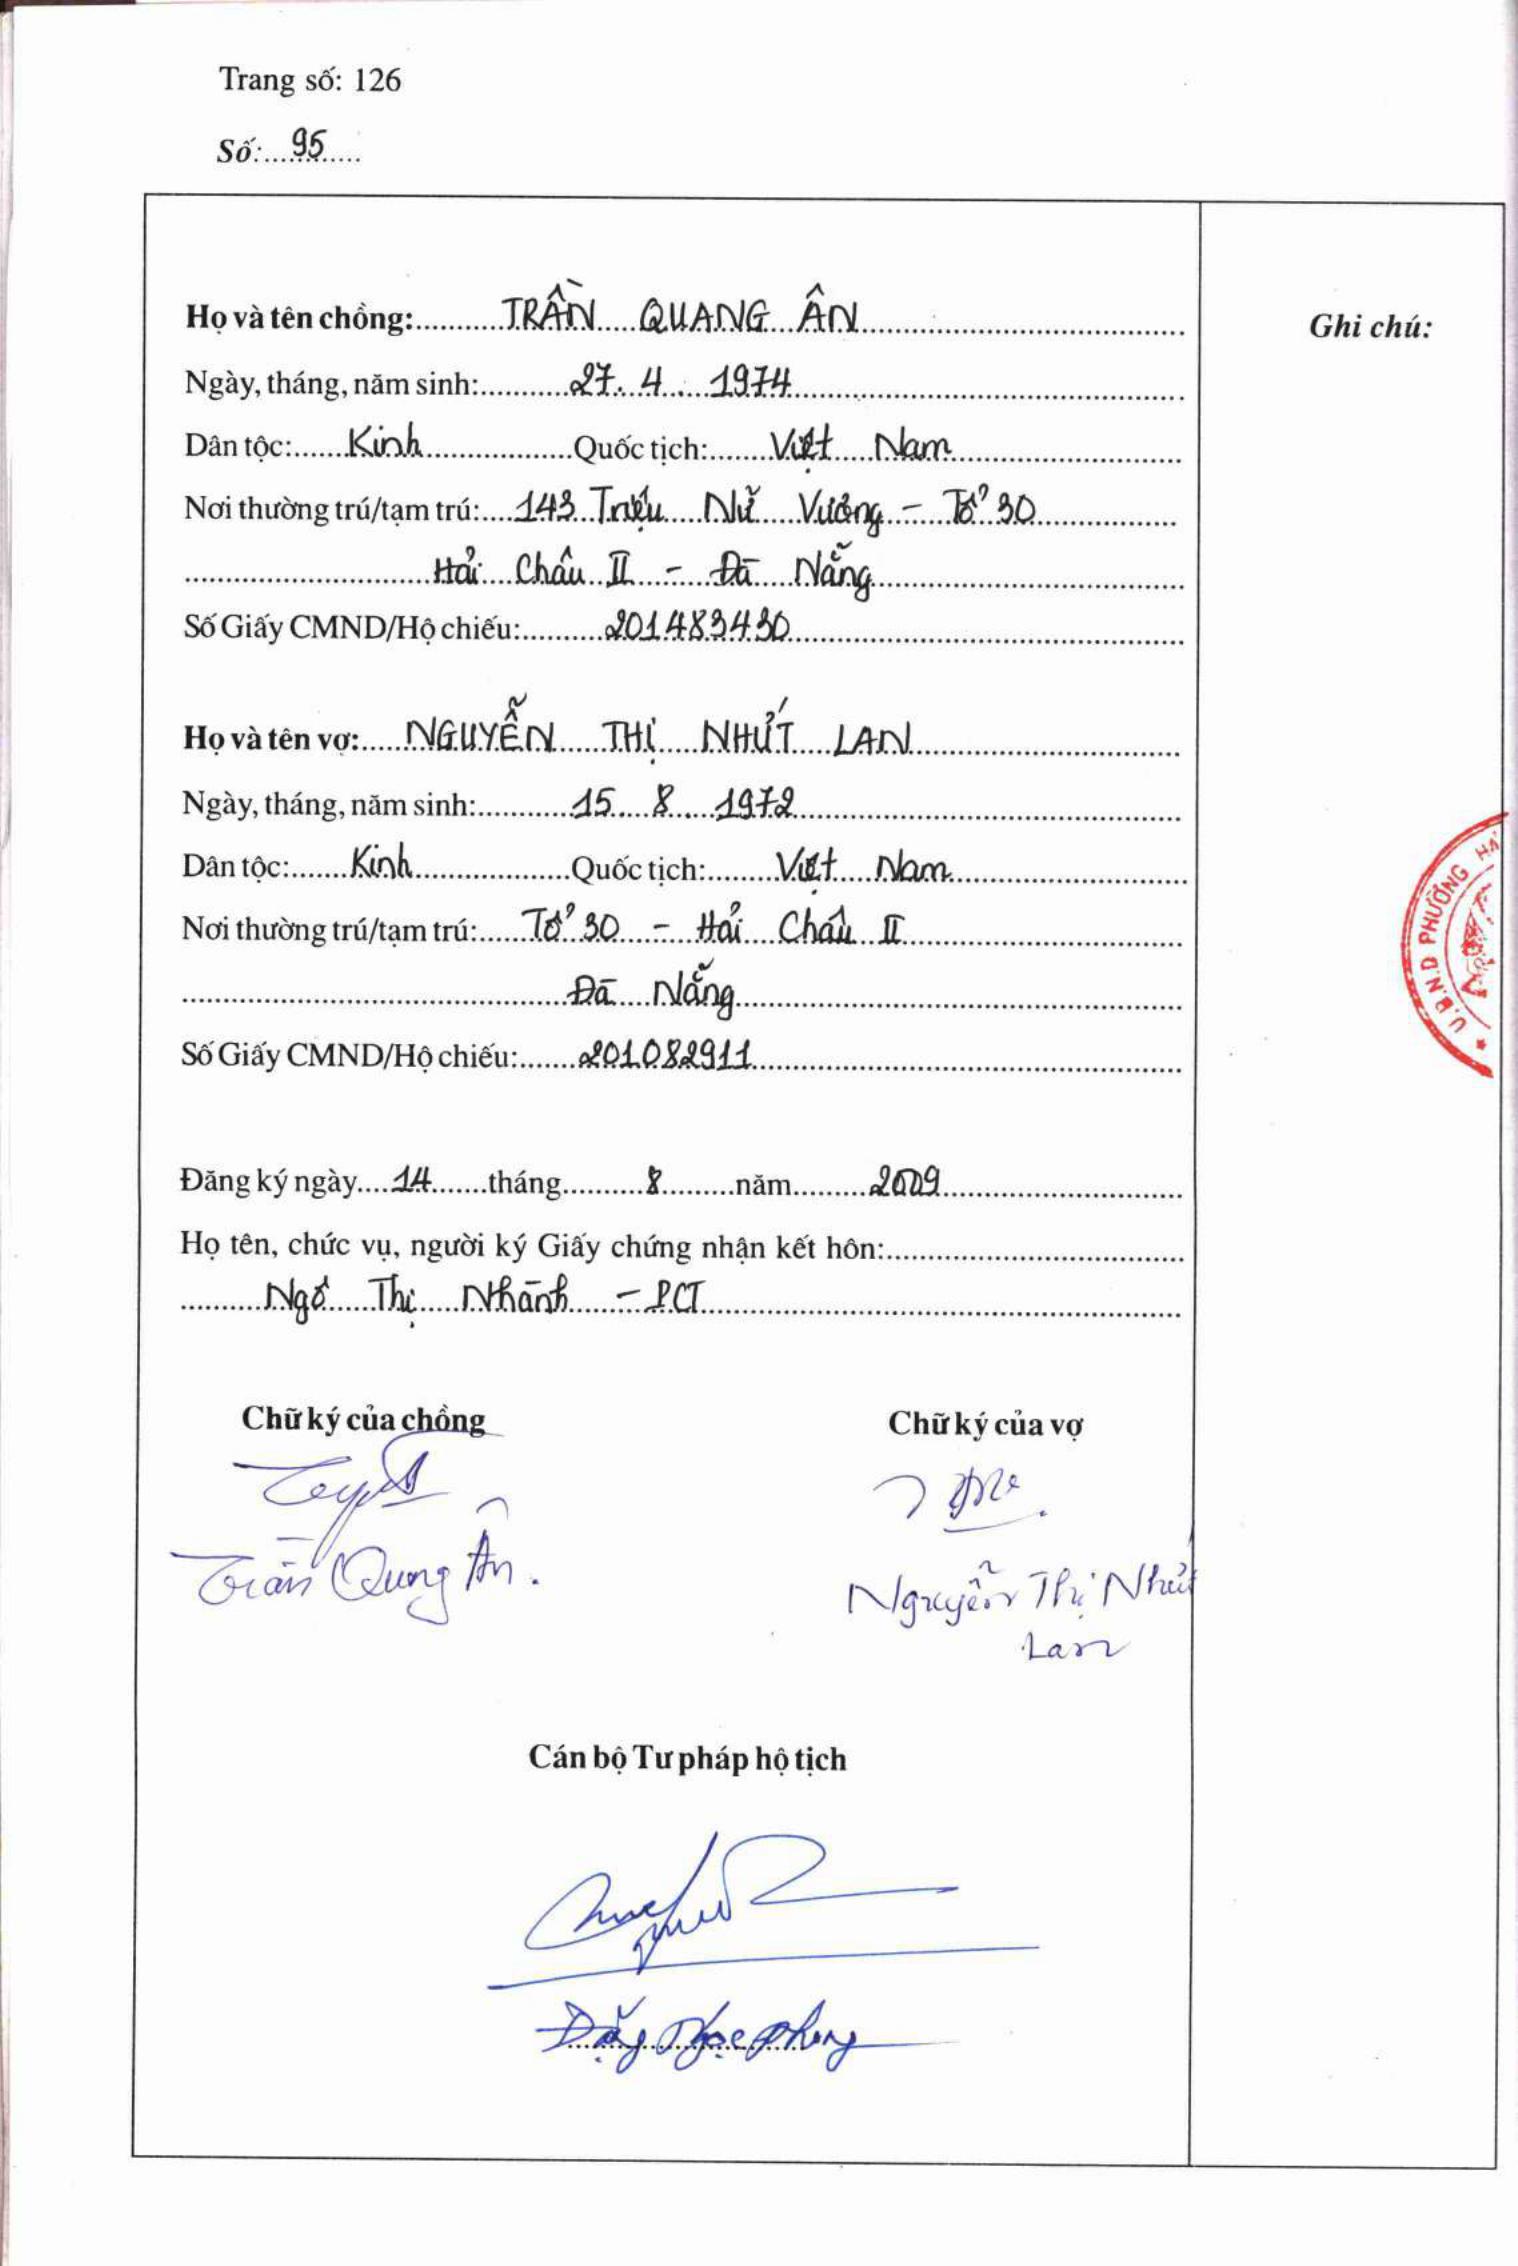 Trang số: 126
Số: 95
Họ và tên chồng: TRẦN QUANG ÂN
Ghi chú:
Ngày, tháng, năm sinh: 27. 4. 1974
Dân tộc: Kinh Quốc tịch: Việt Nam
Nơi thường trú/tạm trú: 143 Triệu Nữ Vương - Tổ 30
Hải Châu II - Đà Nẵng
Số Giấy CMND/Hộ chiếu: 201483430
Họ và tên vợ: NGUYỄN THỊ NHỨT LAN
Ngày, tháng, năm sinh: 15. 8. 1972
Dân tộc: Kinh Quốc tịch: Việt Nam
Nơi thường trú/tạm trú: Tổ 30 - Hải Châu II
Đà Nẵng
Số Giấy CMND/Hộ chiếu: 201082911
U.B.N.D PHƯỜNG HẢ
Đăng ký ngày 14 tháng 8 năm 2009
Họ tên, chức vụ, người ký Giấy chứng nhận kết hôn:
Ngô Thị Nhành - PCT
Chữ ký của chồng Chữ ký của vợ
Trần Quang Ân.
Nguyễn Thị Nhứt
Lan
Cán bộ Tư pháp hộ tịch
Đặng Ngọc Phong